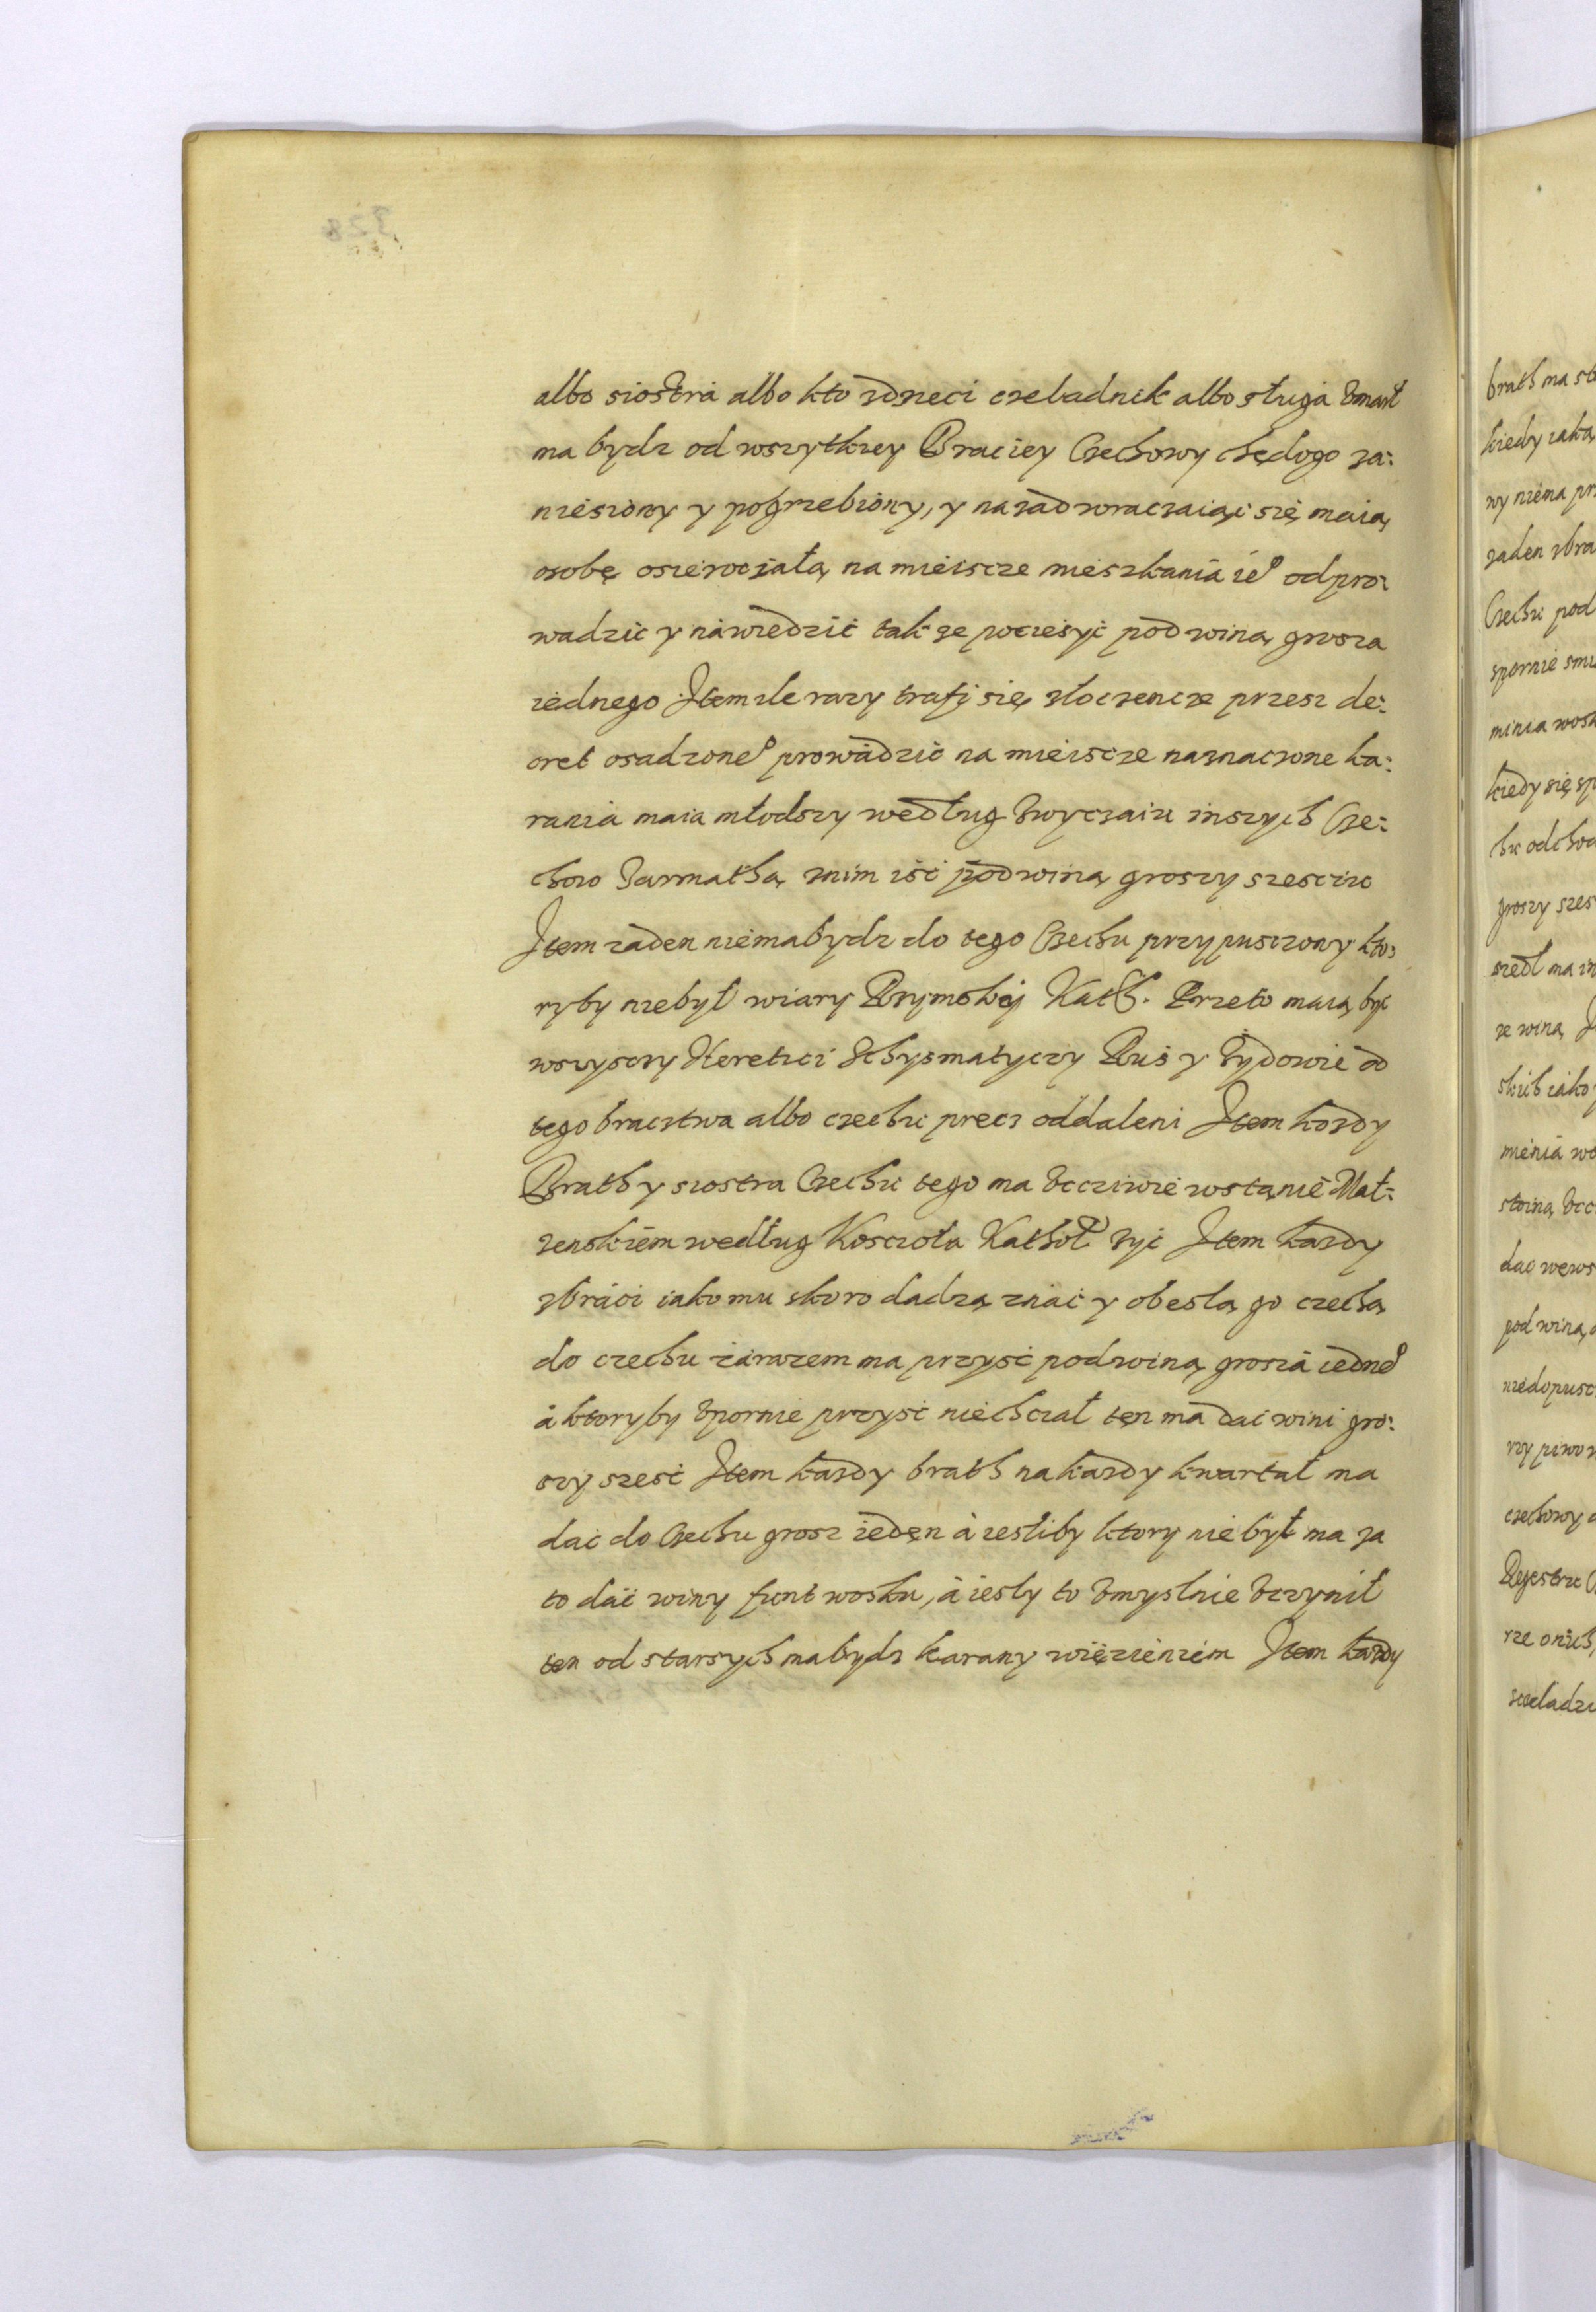 albo siostra albo kto zdzieci czeladnik albo sługa Vmarł
ma bydz od wszytkiey Braciey Czechowy chędogo za:
niesiony y pogrzebiony, y nazad wraczaiąci się maią
osobę osierociałą na mieiscze mieszkania ie° odpro:
wadzic y nawiedzic tak ze pociesyć pod winą grosza
iednego Item ile razy trafi się złoczencze przesz de:
cret osadzone° prowadzic na mieiscze naznaczone ka:
rania maia młodszy według Zwyczaiu inszych Cze:
chow Zarmathą znim iść pod winą groszy szesciu
Item zaden niema bydz do tego Czechu przypuszczony kto:
ryby niebył wiary Rzymskiej Kath. Przeto maią być
wszysczy Heretici Schysmatyczy Ruś y Żydowie od
tego bractwa albo czechu precz oddaleni Item kozdy
Brath y siostra Czechu tego ma Vcciwie wstanie Mał:
zenskiem według Koscioła Kathol żyć Item kazdy
zbraci iako mu skoro dadzą znać y obesla go czechą
do czechu zarazem ma przyść pod winą grosza iedne°
a ktoryby Vpornie przyść niechczał ten ma dać wini gro:
szy szesć Item kazdy brath na kazdy kwartał ma
dać do Czechu grosz ieden a iesliby ktory nie był ma za
to dać winy funt wosku, a iesly to Vmyslnie Vczynił
ten od starsych ma bydz karany więzieniem Item kazdy
brath ma
kiedy
wy niema
zaden zbra
Czechu pod
spornie
minia
kiedy się
chu
groszy szes
szedł ma
ze winą
iako
mienia
dac
pod winą
niedopusc
czechowy
Rejestru
328